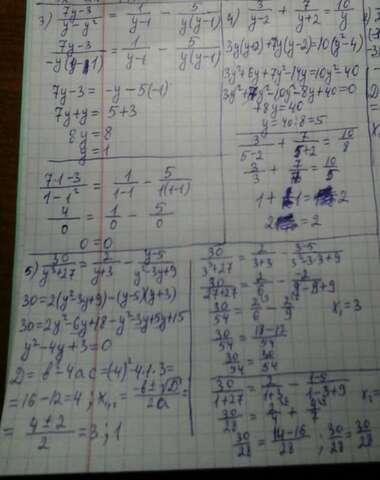 3) (7y-3)/(y-y²) = 1/(y-1) - 5/(y(y-1))
(7y-3)/(-y(y-1)) = 1/(y-1) - 5/(y(y-1))
7y-3 = -y-5(-1)
7y+y = 5+3
8y = 8
y = 1
(7·1-3)/(1-1²) = 1/(1-1) - 5/(1(1-1))
4/0 = 1/0 - 5/0
0 = 0
4) 3/(y-2) + 7/(y+2) = 10/y
3y(y+2)+7y(y-2)=10(y²-4)
3y²+6y+7y²-14y=10y²-40
3y²+7y²-10y²-8y+40=0
+8y=40
y=40:8=5
3/(5-2) + 7/(5+2) = 10/8
3/3 + 7/7 = 10/5
1+1=2
2=2
5) 30/(y³+27) = 2/(y+3) - (y-5)/(y²-3y+9)
30=2(y²-3y+9)-(y-5)(y+3)
30=2y²-6y+18-y²-3y+5y+15
y²-4y+3=0
D=b²-4ac=(-4)²-4·1·3=
=16-12=4; x₁,₂=(-b±√D)/2a=
= (4±2)/2 = 3; 1
30/(3³+27) = 2/(3+3) - (3-5)/(3²-3·3+9)
30/(27+27) = 2/6 - (-2)/(9-9+9)
x₁=3
30/54 = (18-12)/54
30/54 = 30/54
30/(1+27)
30/28 = 2/4
30/28 = (14-16)/28; 30/28 = 30/28